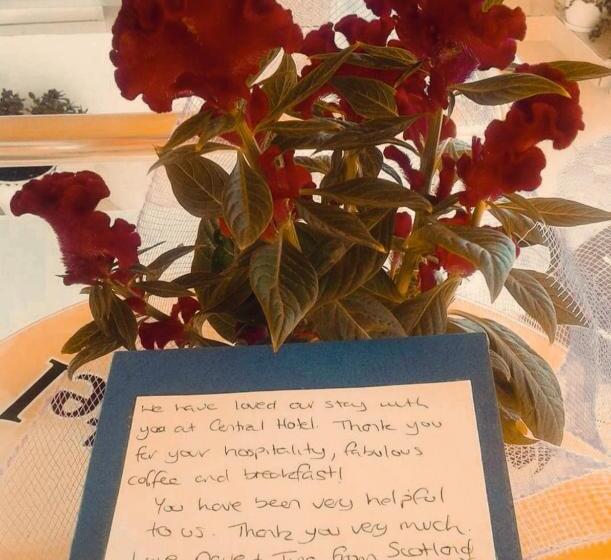 We have loved our stay with
you at Central Hotel. Thank you
for your hospitality, fabulous
coffee and breakfast!
You have been very helpful
to us. Thank you very much.
Love from Scotland